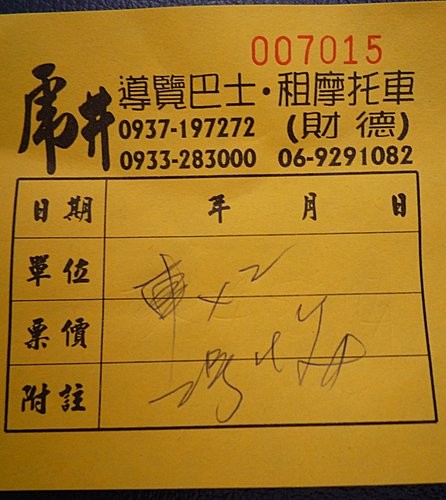 007015
虎井
導覽巴士·租摩托車
0937-197272 (財德)
0933-283000 06-9291082
日期 年 月 日
單位
車x2
票價
附註